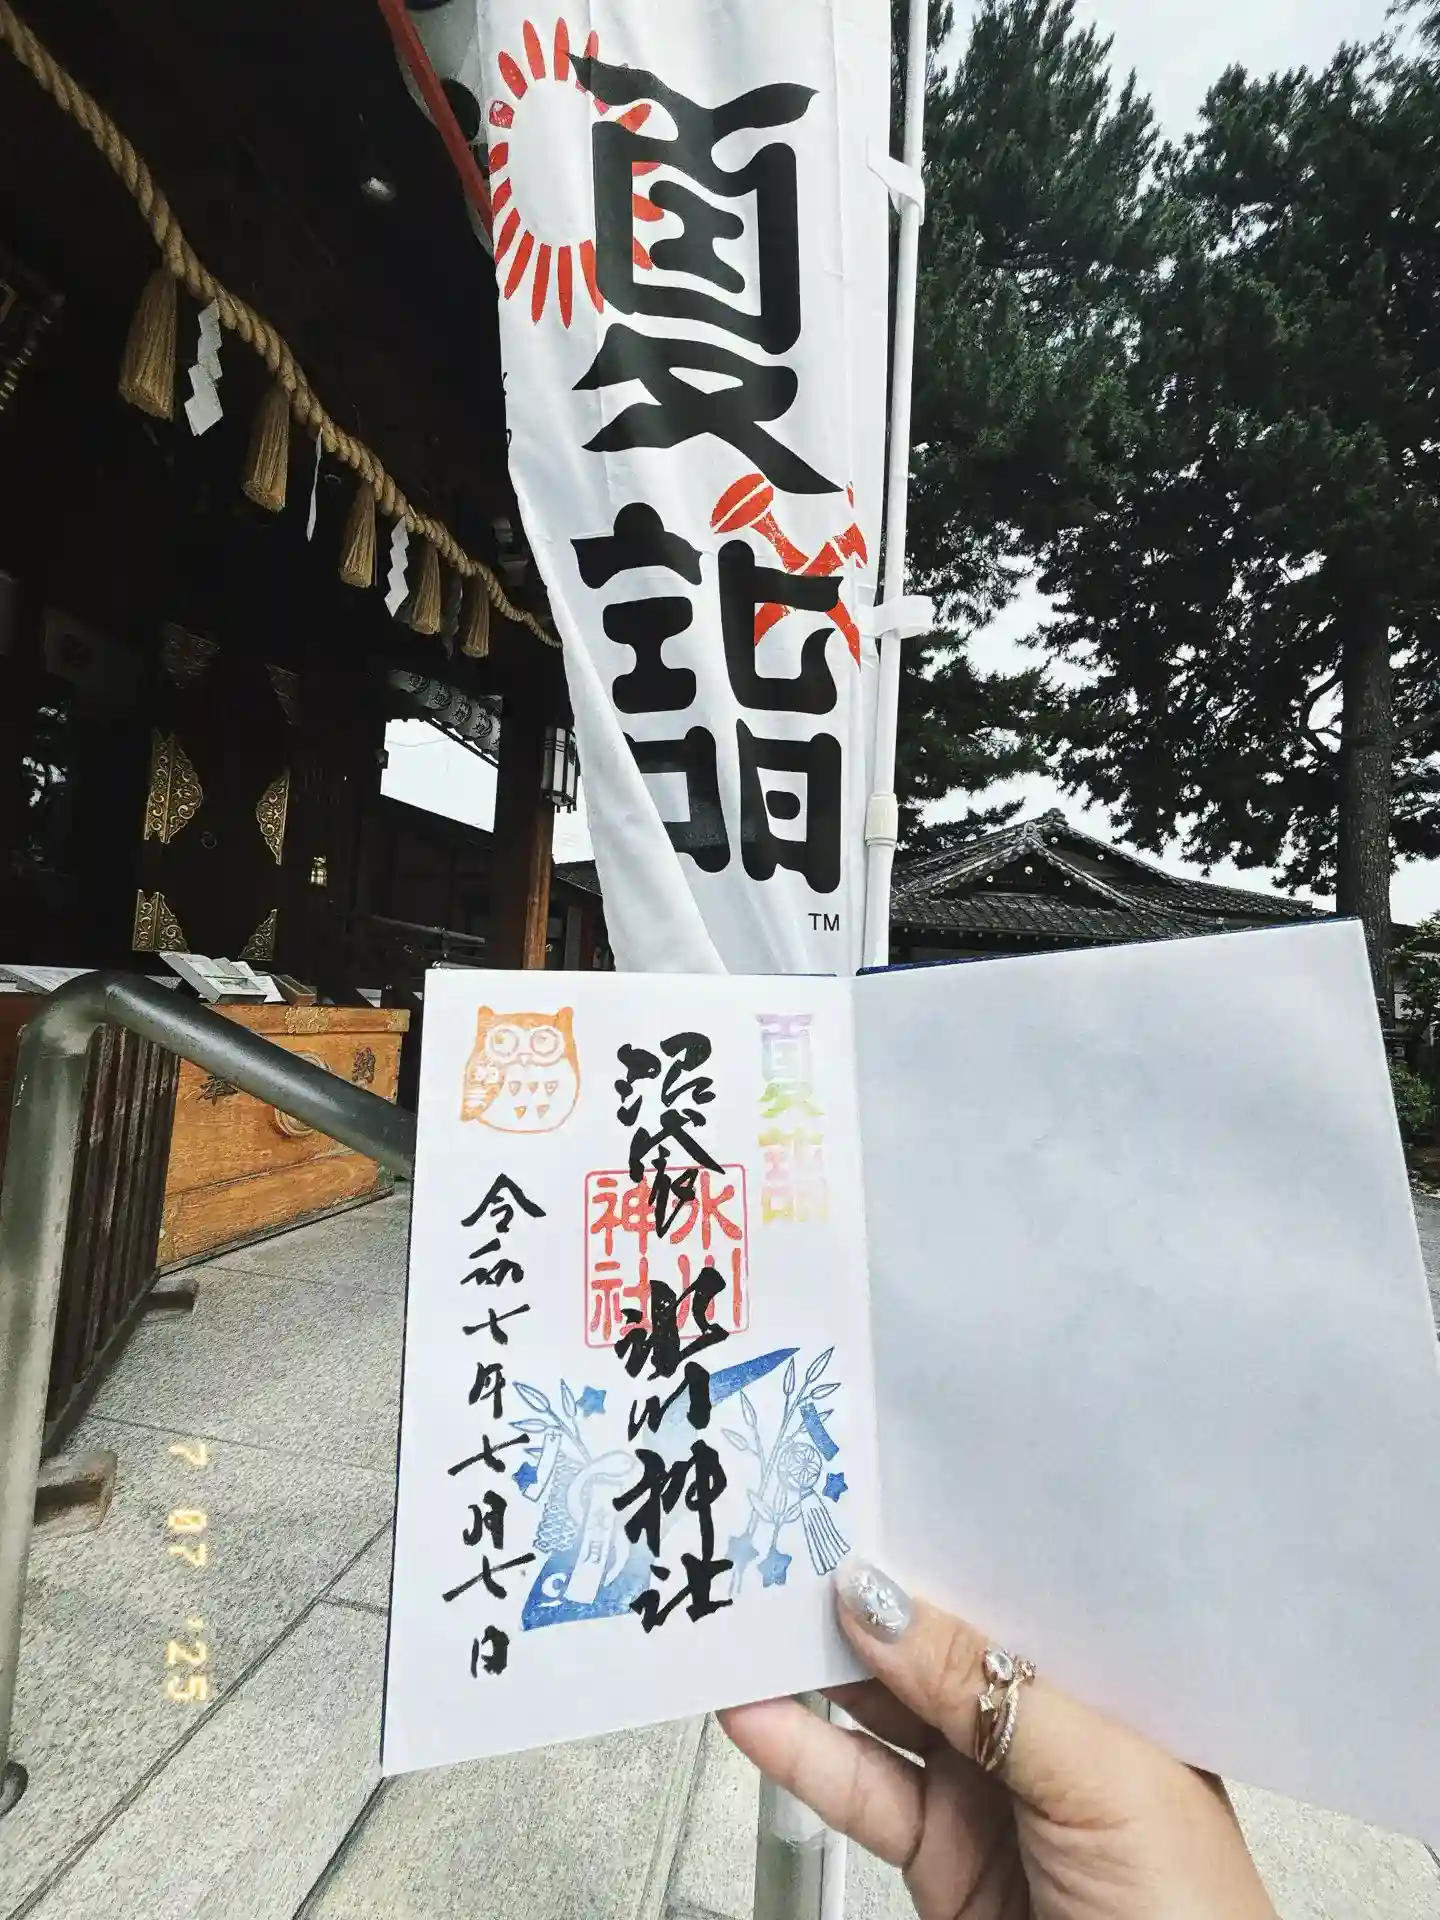 夏詣
TM
奉納
夏詣
沼袋 氷川神社
氷川神社
令和七年七月七日
7 07 '25